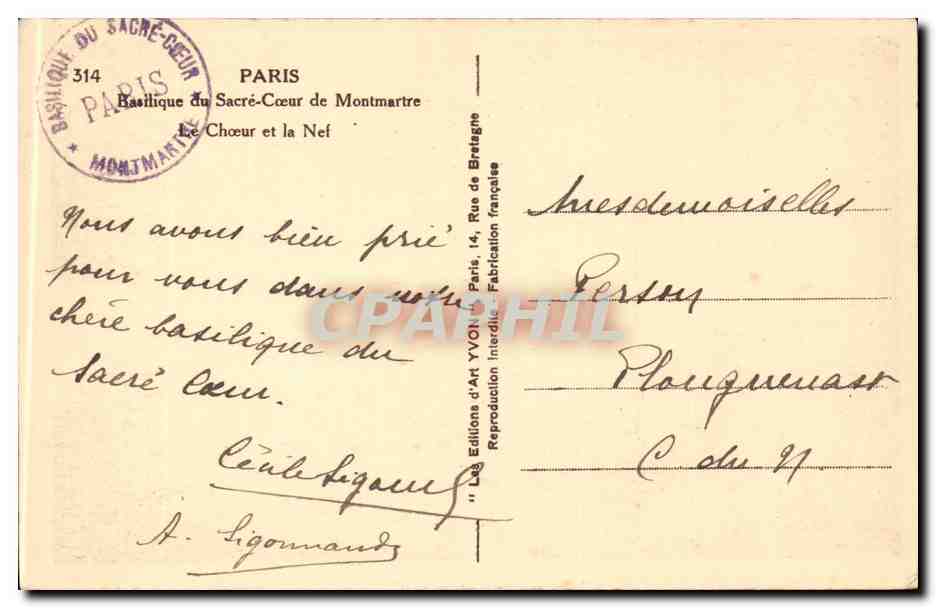 BASILIQUE DU SACRÉ-CŒUR
PARIS
★ MONTMARTRE ★
314
PARIS
Basilique du Sacré-Cœur de Montmartre
Le Chœur et la Nef
Nous avons bien prié
pour vous dans notre
chère basilique du
Sacré Cœur.
Cécile
A.
" Les Editions d'Art YVON " Paris, 14, Rue de Bretagne
Reproduction Interdite - Fabrication française
Mesdemoiselles
Person
Plouguenast
C. du N.
CPAPHIL